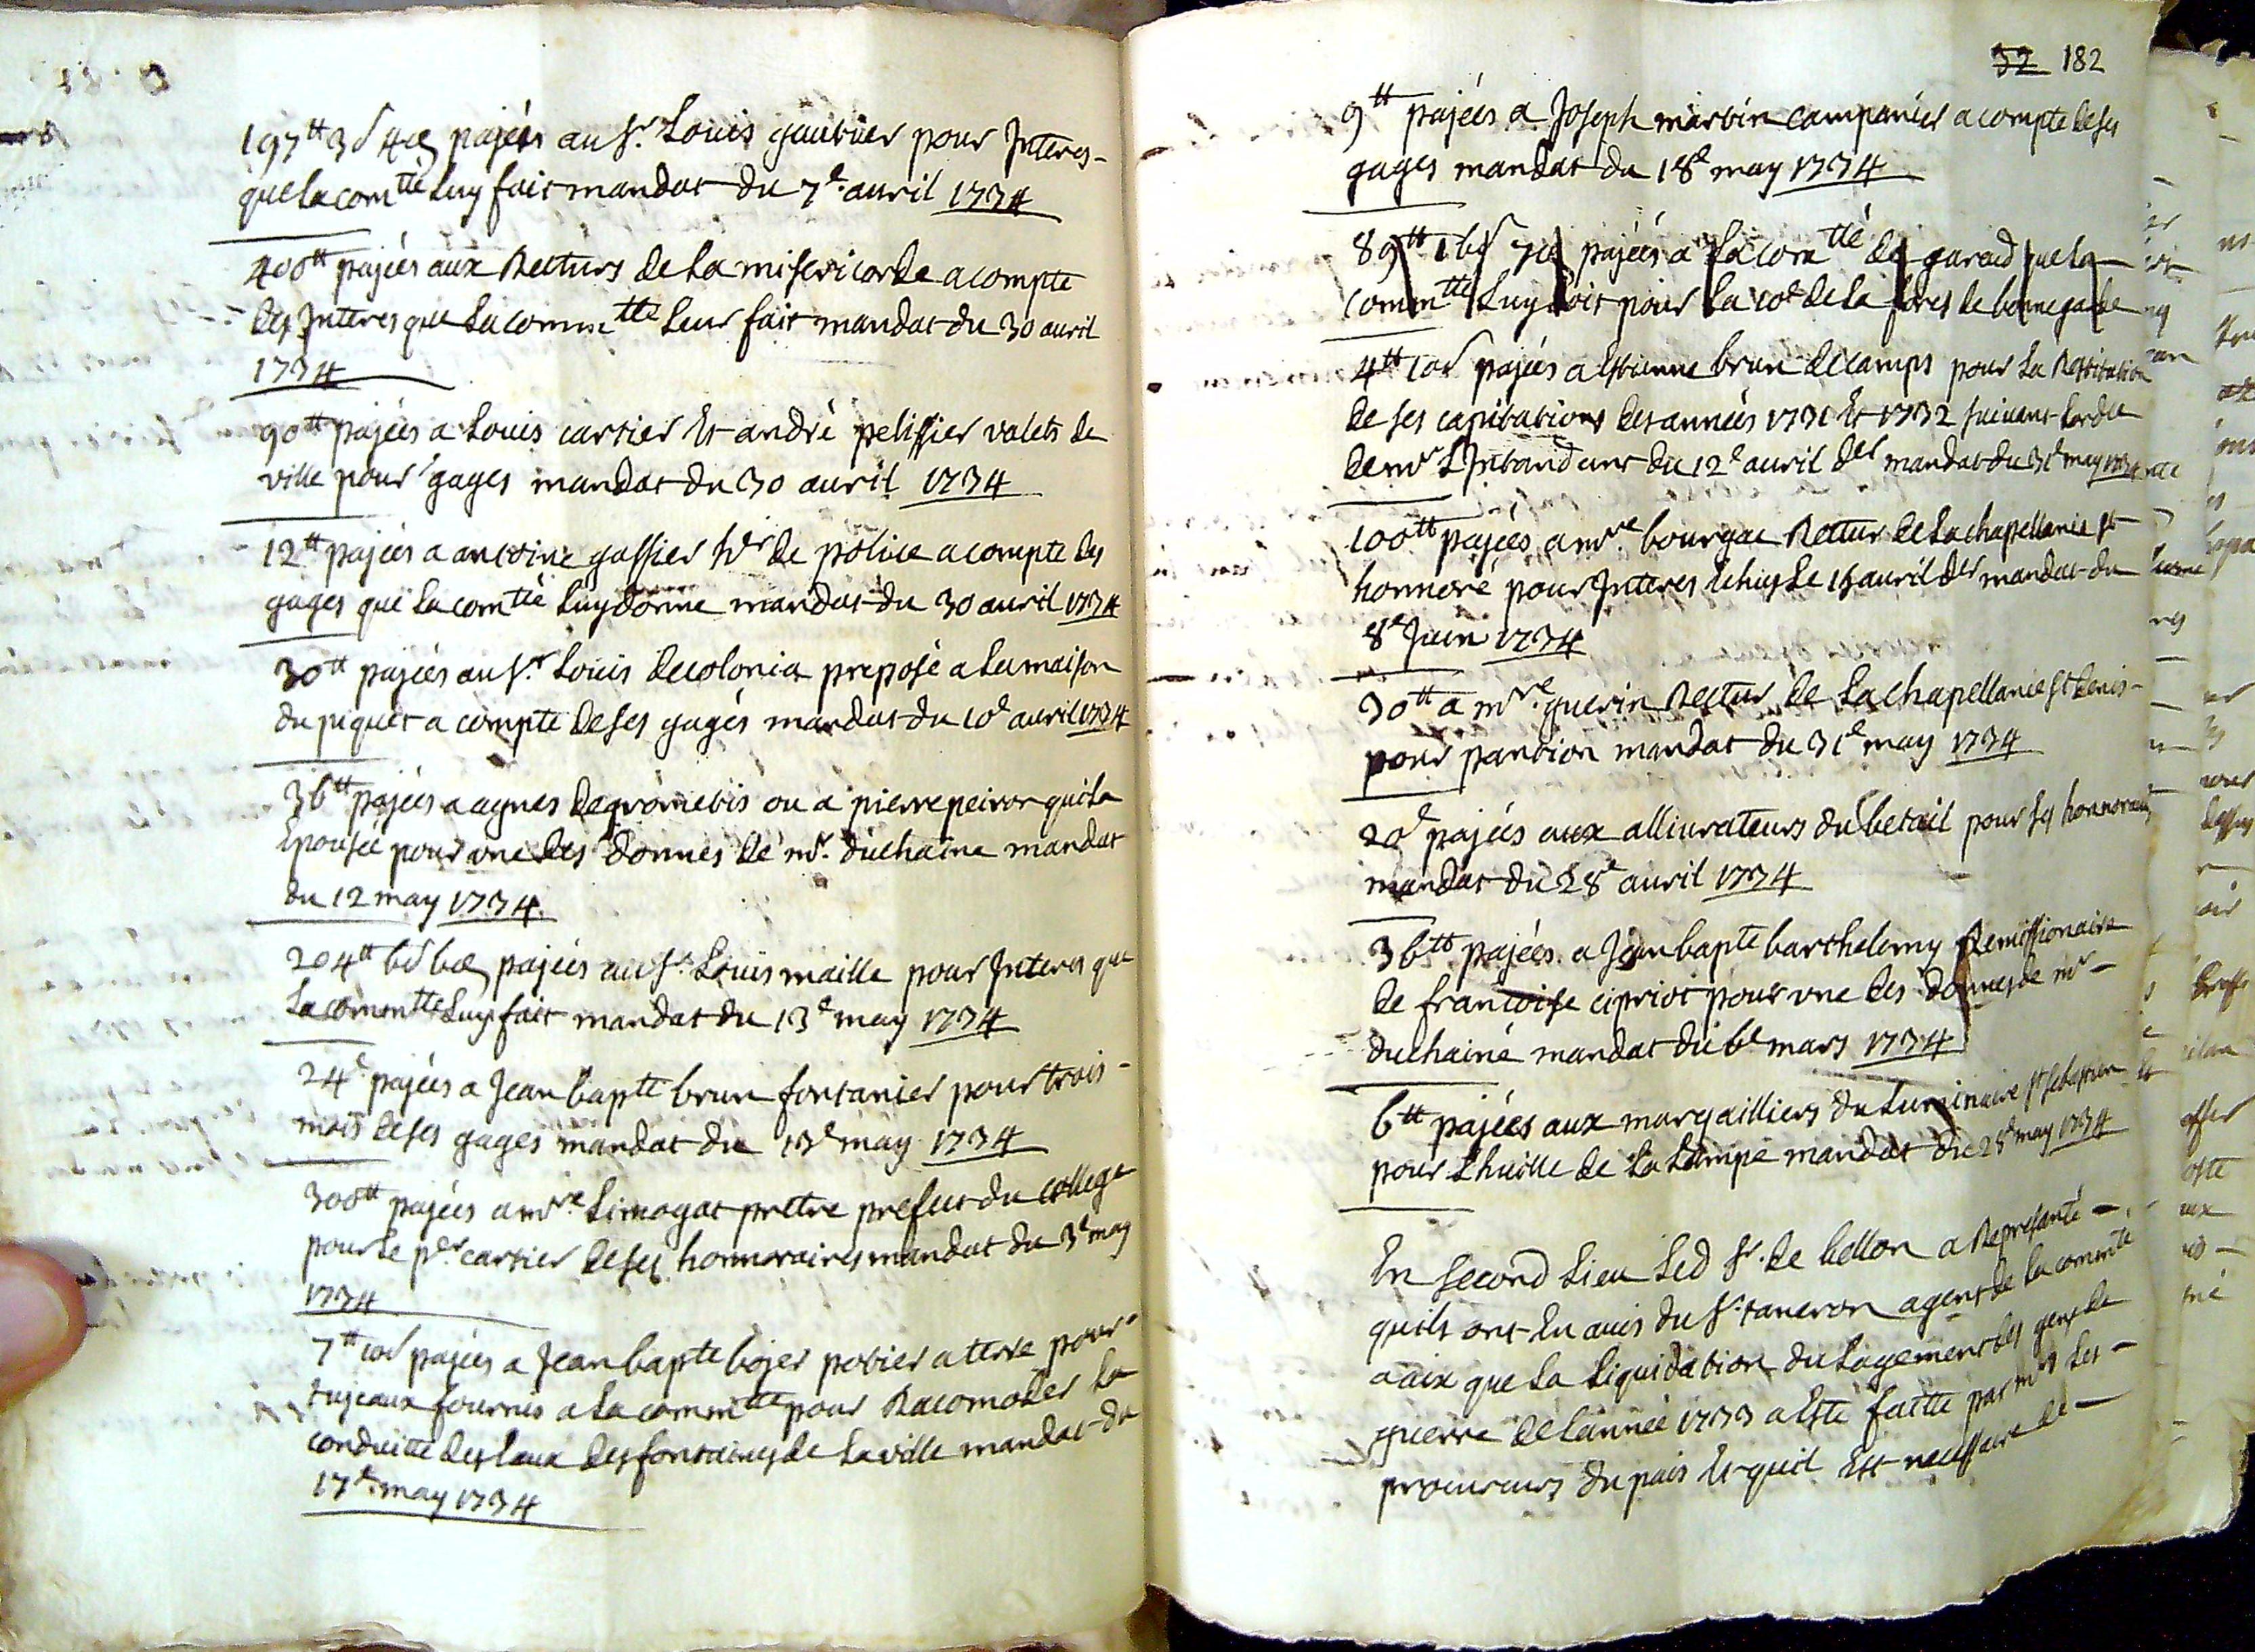 197ᵗᵗ 3ˢ 4ᵈ pajées au Sʳ. Louis gautier pour Interes-
que la comᵗᵗᵉ Luy fait mandat du 7ᵉ avril 1734
400ᵗᵗ pajées aux Recteurs de La misericorde a compte
des Interes que La commᵗᵗᵉ Leur fait mandat du 30 avril
1734
90ᵗᵗ pajées a Louis cartier Et andré pelissier valets de
ville pour gages mandat du 30 avril 1734
12ᵗᵗ pajées a antoine gassier de police a compte des
gages que La comᵗᵗᵉ Luy donne mandat du 30 avril 1734
30ᵗᵗ pajées au Sʳ. Louis decolonia preposé a La maison
du piquet a compte de ses gages mandat du 10ᵉ avril 1734
36ᵗᵗ pajées a agnes degrometis ou a pierre peiron qui la
Epousée pour une des donnes de mʳ. duchaine mandat
du 12 may 1734
204ᵗᵗ 6ˢ 6ᵈ pajées au Sʳ. Louis maille pour Interes que
La commᵗᵗᵉ Luy fait mandat du 13ᵉ may 1734
24ᵉ pajées a Jean bapte brun fontanier pour trois-
mois de ses gages mandat du 13ᵉ may 1734
300ᵗᵗ pajées a mʳᵉ. Limogat prettre prefect du college
pour Le pᵉʳ cartier de ses honnoraires mandat du 3ᵉ may
1734
7ᵗᵗ 10ˢ pajées a Jean bapte bojer potier a terre pour
tujeaux fournis a La commᵗᵗᵉ pour Racomoder La
conduitte des Eaux des fontaines de La ville mandat du
17ᵉ. may 1734
32 182
9ᵗᵗ pajées a Joseph martin campanier a compte de ses
gages mandat du 18ᵉ may 1734
89ᵗᵗ 16ˢ 7ᵈ pajées a La comᵗᵗᵉ de que La
commᵗᵗᵉ Luy doit pour La de La de bonnegarde
4ᵗᵗ 10ˢ pajées a Estienne brun decamps pour La Restitution
de ses capitations des années 1731 Et 1732 suivant Lordre
de mʳ LIntandant du 12ᵉ avril deʳ mandat du 31ᵉ may 1734
100ᵗᵗ pajées a mʳᵉ. bourgae Recteur de La chapellanie Sᵗ
honnoré pour Interes Echus Le 15 avril deʳ mandat du
8ᵉ Juin 1734
30ᵗᵗ a mʳᵉ. guerin Recteur de La chapellanie Sᵗ denis-
pour pantion mandat du 31ᵉ may 1734
20ᵉ pajées aux allivrateurs du betail pour
mandat du 28ᵉ avril 1734
36ᵗᵗ pajées a Jean bapte barthelemy Remissionaire
de francoise cipriot pour une des donnes de mʳ-
duchaine mandat du 6ᵉ mars 1734
6ᵗᵗ pajées aux margailliers du Luminaire Sᵗ sebastien
pour Lhuille de La Lampe mandat du 28ᵉ may 1734
En second Lieu Led Sʳ. de bellon a Represanté-
quils ont Eu avis du Sʳ. taneron agent de La commᵗᵉ
a aix que La Liquidation du Logement des gens de
guerre de Lannée 1733 a Esté faitte par mʳˢ Les-
procureurs du païs Et quil Est necessaire de-